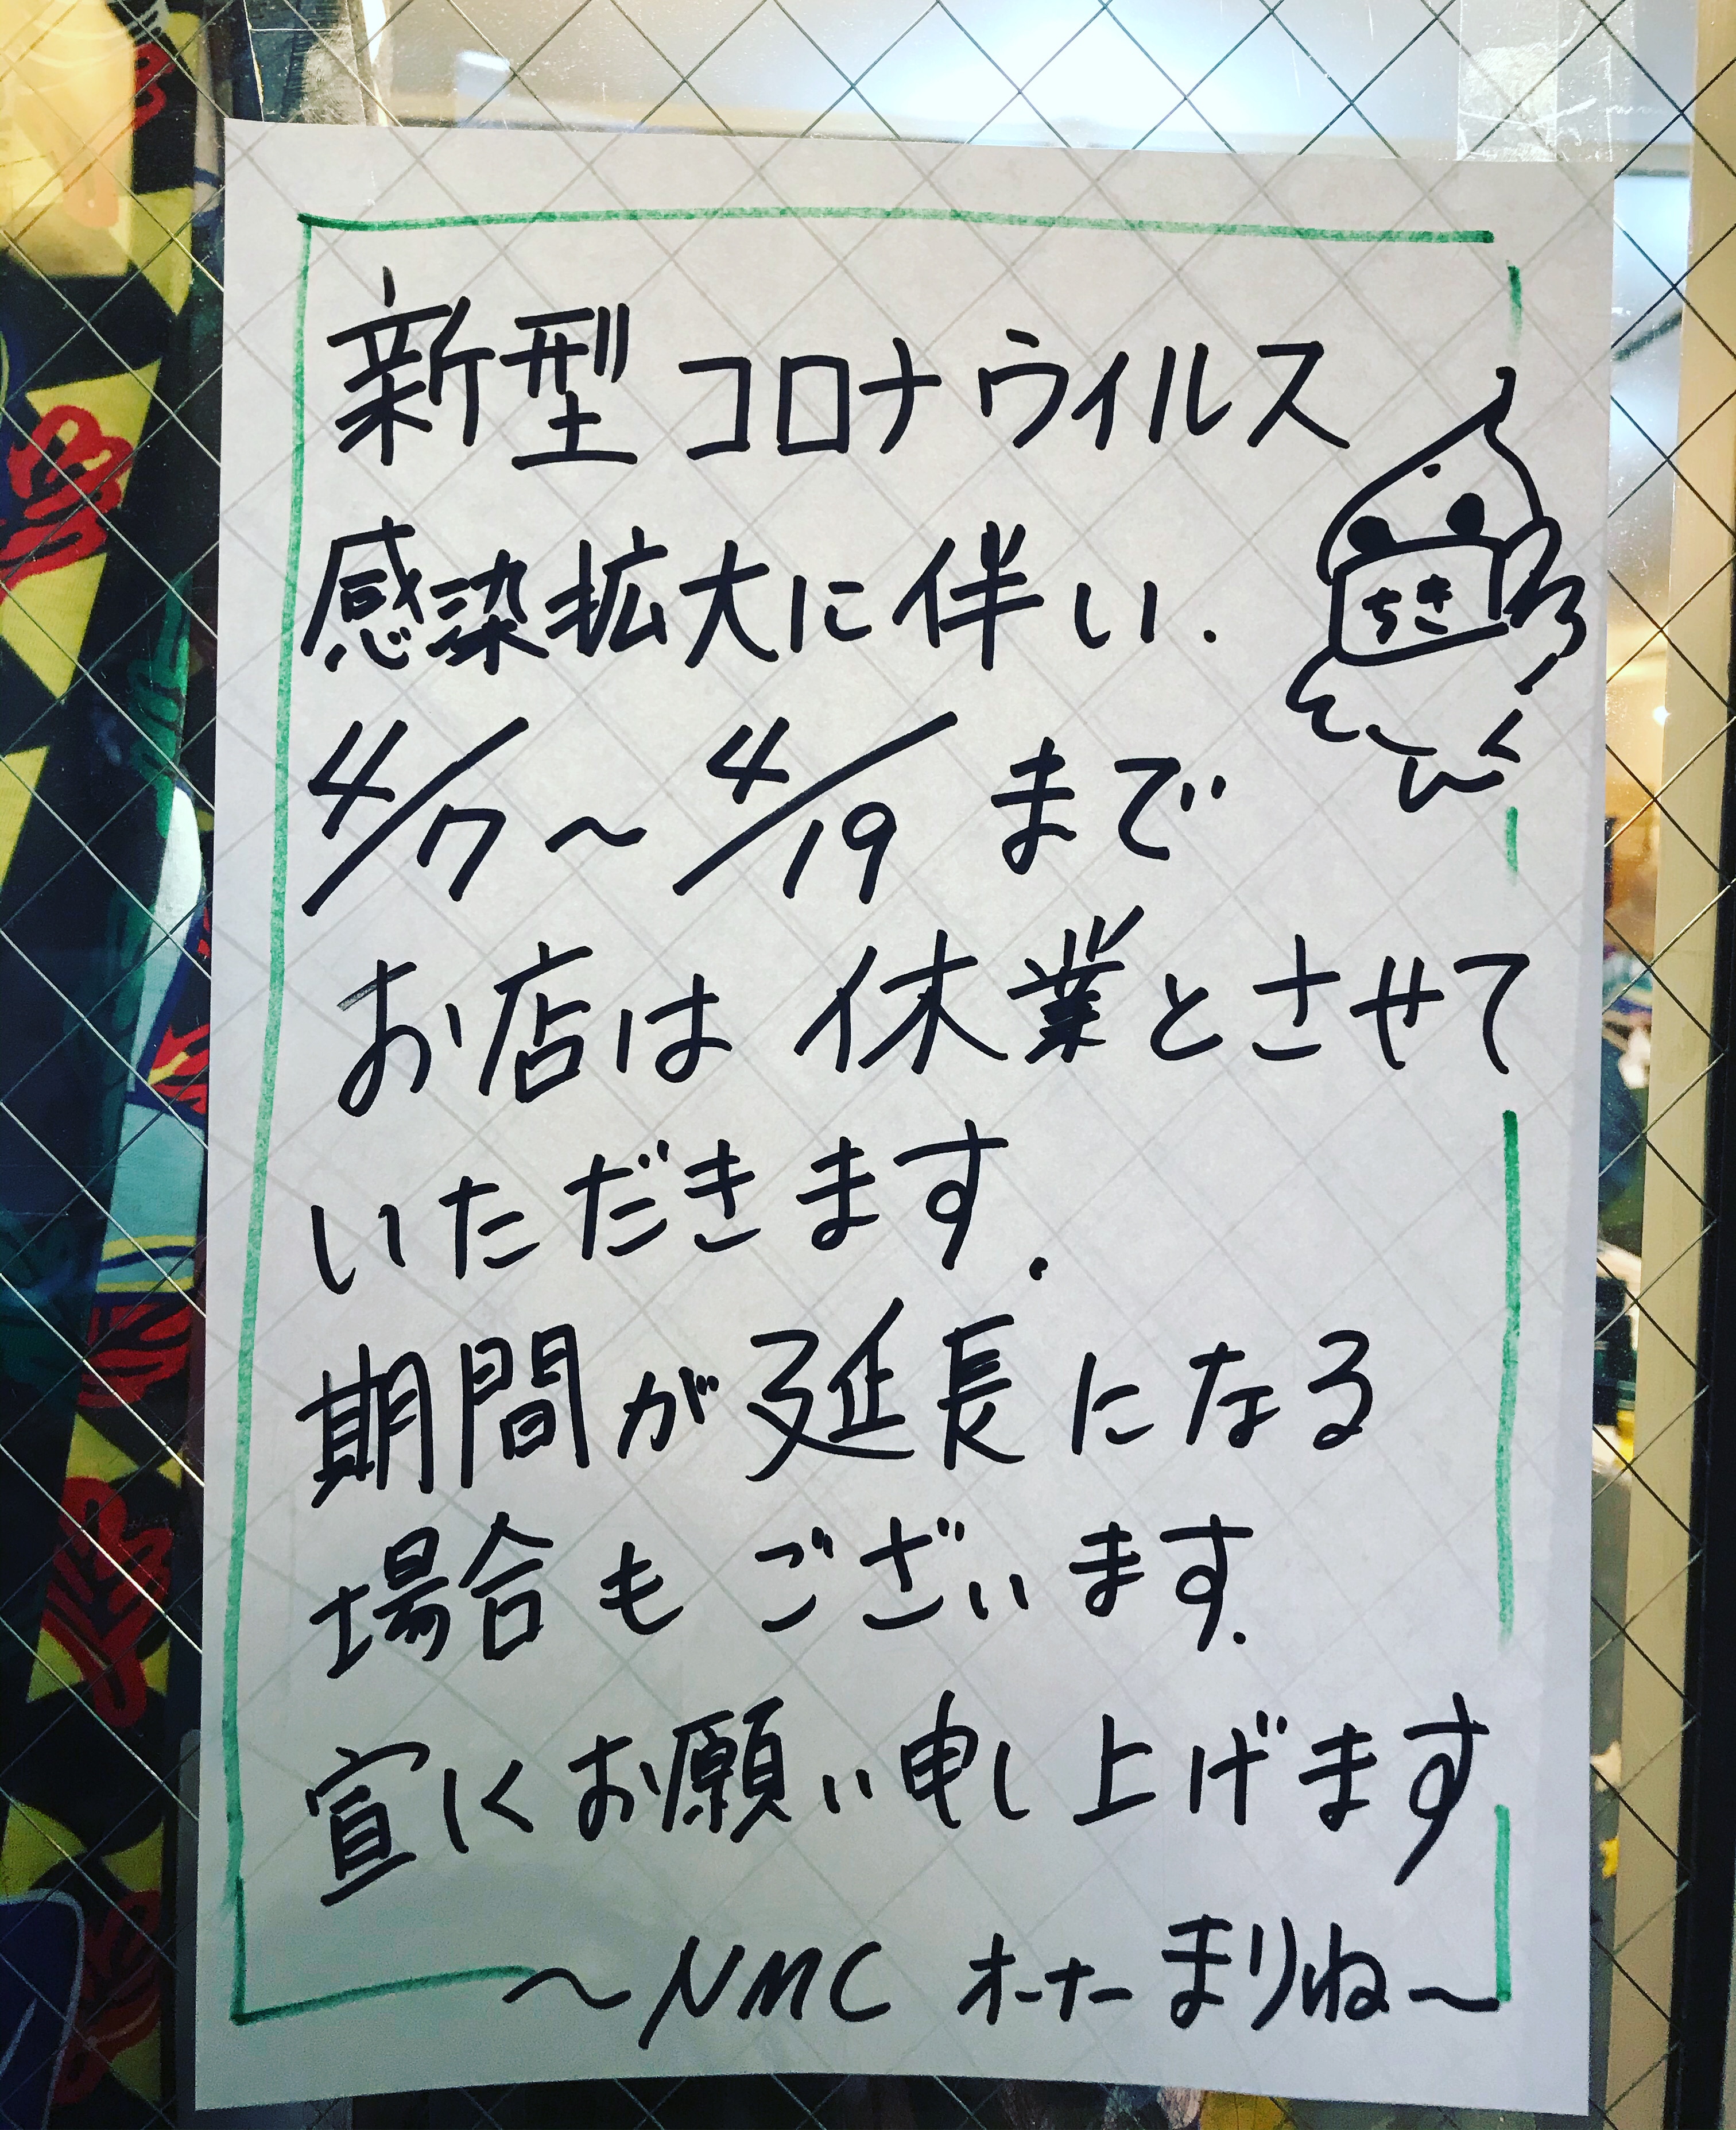 新型コロナウイルス
感染拡大に伴い.
ちき
4/7～4/19まで
お店は休業とさせて
いただきます.
期間が延長になる
場合もございます.
宜しくお願い申し上げます
～NMC オーナー まりね～